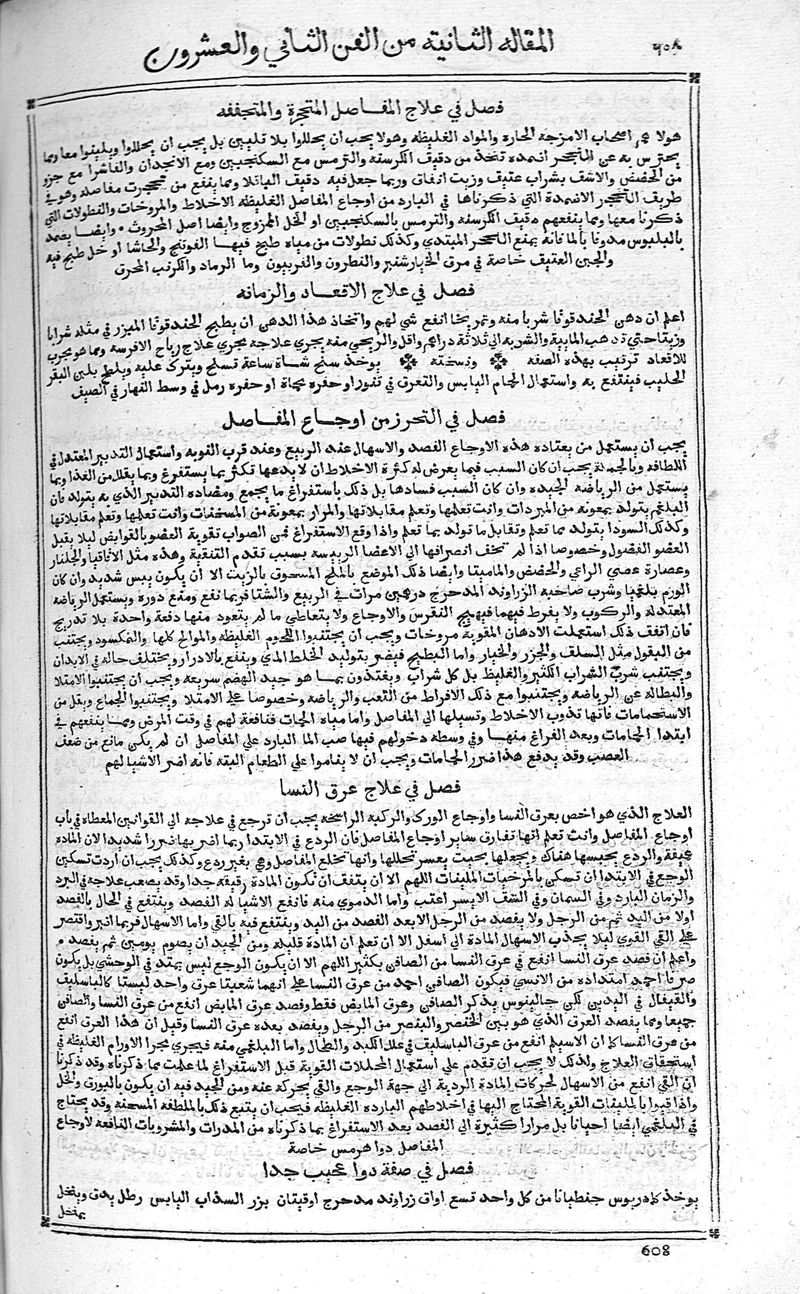 ٦٠٨ المقاله الثانيه من الفن الثاني والعشرون
فصل في علاج المفاصل المتحجرة والمتجففه
هولا هم اصحاب الامزجه الحاره والمواد الغليظه وهولا يجب ان يحللوا بلا تليين بل يجب ان يحللوا ويلينوا معا ومما
يحترس به عن التحجر اضمده تتخذ من دقيق الكرسنه والترمس مع السكنجبين ومع الانجدان والفاشرا مع جزو
من الحضض والاشف بشراب عتيق وزيت انفاق وربما جعل فيه دقيق الباقلا ومما ينفع من تحجرت مفاصله وهو في
طريف التحجر الاضمدة التي ذكرناها في البارد من اوجاع المفاصل الغليظه الاخلاط والمروخات والنطولات التي
ذكرنا معها ومما ينفعهم دقيق الكرسنه والترمس بالسكنجبين او الخل الممزوج وايضا اصل المحروث وايضا يضمد
بالبلبوس مدوفا بالما فانه يمنع التحجر المبتدي وكذلك نطولات من مياه طبخ فيها الفوتنج والحاشا او خل طبخ فيه
والجبن العتيق خاصة في مرق الخيارشنبر والنطرون والفربيون وما الرماد والكرنب المحرق
فصل في علاج الاقعاد والزمانه
اعلم ان دهن الحندقوقا شربا منه وتمريخا انفع شي لهم واتخاذ هذا الدهن ان يطبخ الحندقوقا الميزر في مثله شرابا
وزيتا حتي تذهب المايية والشربه الي ثلاثة دراهم واقل والريحي منه يجري علاجه مجري علاج رياح الافرسه ومما هو مجرب
للاقعاد ترتيب بهذه الصفه ونسخته يوخذ سنج شاة ساعة تسلخ ويترك عليه ويلطخ بلبن البقر
الحليب فينتفع به واستعمال الحمام اليابس والتعرق في تنور او حفره محماة او حفره رمل في وسط النهار في الصيف
فصل في التحرز من اوجاع المفاصل
يجب ان يستعمل من يعتاده هذه الاوجاع الفصد والاسهال عند الربيع وعند قرب النوبه واستعمال التدبير المعتدل في
اللطافه وبالجملة يجب ان كان السبب فيما يعرض له كثرة الاخلاط ان لا يدعها تكثر بما يستفرغ وبما يقلل من الغذا وبما
يستعمل من الرياضه الجيده وان كان السبب فسادها بل ذلك باستفراغ ما يجمع ومضاده التدبير الذي به يتولد فان
البلغم يتولد بمعونه من المبردات وانت تعلمها وتعلم مقابلاتها والمرار بمعونة من المسخنات وانت تعلمها وتعلم مقابلاتها
وكذلك السودا يتولد مما تعلم وتقابل ما تولد بما تعلم واذا وقع الاستفراغ فمن الصواب تقوية العضو بالقوابض ليلا يقبل
العضو الفضول وخصوصا اذا لم تخف انصرافها الي الاعضا الرييسه بسبب تقدم التنقية وهذه مثل الاقاقيا والجلنار
وعصارة عصي الراعي والحضض والماميثا وايضا ذلك الموضع بالملح المسحوق بالزيت الا ان يكون يبس شديد وان كان
الورم بلغميا وشرب صاحبه الزراوند المدحرج درهمين مرات في الربيع والشتا فربما نفع ومنع دوره ويستعمل الرياضه
المعتدله والركوب ولا يفرط فيهما فيهيج النقرس والاوجاع ولا يتعاطي ما لم يتعود منها دفعة واحدة بلا تدريج
فان اتفق ذلك استعملت الادهان المقويه مروخات ويجب ان يجتنبوا اللحوم الغليظه والموالح كلها والنمكسود ويجتنب
من البقول مثل السلف والجزر والخيار واما البطيخ فيضر بتوليد الخلط المذي وينفع بالادرار ويختلف حاله في الابدان
ويجتنب شرب الشراب الكثير والغليظ بل كل شراب ويغتذون بما هو جيد الهضم سريعه ويجب ان يجتنبوا الامتلا
والبطاله عن الرياضه ويجتنبوا مع ذلك الافراط من التعب والرياضه وخصوصا علي الامتلا ويجتنبوا الجماع ويقل من
الاستحمامات فانها تذوب الاخلاط وتسيلها الي المفاصل واما مياه الحمات فنافعة لهم في وقت المرض ومما ينفعهم في
ابتدا الحمامات وبعد الفراغ منها وفي وسطه دخولهم فيها صب الما البارد علي المفاصل ان لم يكن مانع من ضعف
العصب وقد يدفع هذا ضرر الحمامات ويجب ان لا يناموا علي الطعام البته فانه اضر الاشيا لهم
فصل في علاج عرق النسا
العلاج الذي هو اخص بعرق النسا واوجاع الورك والركبه الراسخه يجب ان ترجع في علاجه الي القوانين المعطاه في باب
اوجاع المفاصل وانت تعلم انها تفارق ساير اوجاع المفاصل فان الردع في الابتدا ربما اضر بها ضررا شديدا لان المادة
عميقة والردع يحبسها هناك ويجعلها بحيث يعسر تحللها وانها تخلع المفاصل وهي بغير ردع وكذلك يجب ان اردت تسكين
الوجع في الابتدا ان تسكن بالمرخيات الملينات اللهم الا ان يتفق ان تكون المادة رقيقه جدا وقد يصعب علاجه في البرد
والزمان البارد وفي السمان وفي الشق الايسر اعتب واما الدموي منه فانفع الاشيا له الفصد وينتفع في الحال بالفصد
اولا من اليد ثم من الرجل ولا يفصد من الرجل الا بعد الفصد من اليد وينتفع فيه بالقي واما الاسهال فربما اضر واقتصر
علي القي القوي ليلا يجذب الاسهال المادة الي اسفل الا ان تعلم ان المادة قليله ومن الجيد ان يصوم يومين ثم يفصد
واعلم ان فصد عرق النسا انفع في عرق النسا من الصافن بكثير اللهم الا ان يكون الوجع ليس يمتد في الوحشي بل يكون
ضربا احمد امتداده من الانسي فيكون الصافن احمد من عرق النسا علي انهما شعبتا عرق واحد ليستا كالباسليق
والقيفال في اليدين لكن جالينوس يذكر الصافن وعرق المابض فقط وفصد عرق المابض انفع من عرق النسا والصافن
جميعا ومما يفصد العرق الذي هو بين الخنصر والبنصر من الرجل ويفصد بعده عرق النسا وقيل ان هذا العرق انفع
من عرق النسا كما ان الاسيلم انفع من عرق الباسليق في علل الكبد والطحال واما البلغمي منه فيجري مجرا الاورام الغليظه في
استحقاق العلاج ولذلك لا يجب ان تقدم علي استعمال المحللات القويه قبل الاستفراغ لما علمت مما ذكرناه وقد ذكرنا
ان القي انفع من الاسهال لحركات المادة الرديه الي جهة الوجع والقي يحركه عنه ومن الجيد فيه ان يكون بالبورق والخل
واذا قيوا بالملينات القوية المحتاج اليها في اخلاطهم البارده الغليظه فيجب ان يتبع ذلك بالملطفه المسخنه وقد يحتاج
في البلغمي ايضا احيانا بل مرارا كثيرة الي الفصد بعد الاستفراغ بما ذكرناه من المدرات والمشروبات النافعة لاوجاع
المفاصل دوا هرمس خاصة
فصل في صفة دوا عجيب جدا
يوخذ كمادريوس جنطيانا من كل واحد تسع اواق زراوند مدحرج اوقيتان بزر السذاب اليابس رطل يدق وينخل
بمنخل
608